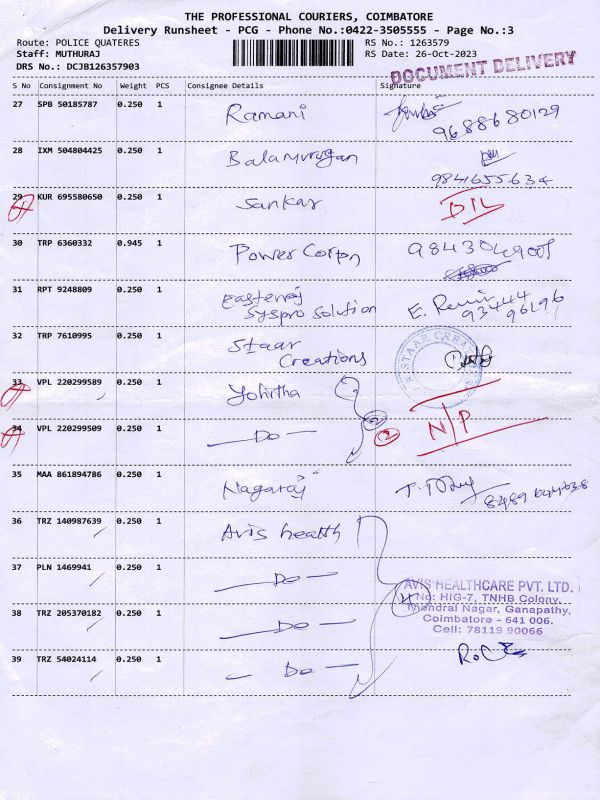 THE PROFESSIONAL COURIERS, COIMBATORE
Delivery Runsheet - PCG - Phone No.:0422-3505555 - Page No.:3
Route: POLICE QUATERES RS No.: 1263579
Staff: MUTHURAJ RS Date: 26-Oct-2023
DRS No.: DCJB126357903
DOCUMENT DELIVERY
S No Consignment No Weight PCS Consignee Details Signature
27 SPB 50185787 0.250 1 Ramani
9688680129
28 IXM 504804425 0.250 1 Balamurugan
9841655634
29 KUR 695580650 0.250 1 Sankar D/L
30 TRP 6360332 0.945 1 Power Corpn 9843049001
31 RPT 9248809 0.250 1 Syspro Solution E.
93444
96196
32 TRP 7610995 0.250 1 Staar
Creations
STAAR CREATIONS
33 VPL 220299589 0.250 1 Yohirtha
34 VPL 220299509 0.250 1 — Do — 2 2 N/P
35 MAA 861894786 0.250 1 Nagaraj
8489644638
36 TRZ 140987639 0.250 1 Avis health
37 PLN 1469941 0.250 1 — Do — 4
AVIS HEALTHCARE PVT. LTD.
No: HIG-7, TNHB Colony,
Nagar, Ganapathy,
38 TRZ 205370182 0.250 1 — Do —
Coimbatore - 641 006.
Cell: 78119 90066
39 TRZ 54024114 0.250 1 — Do —